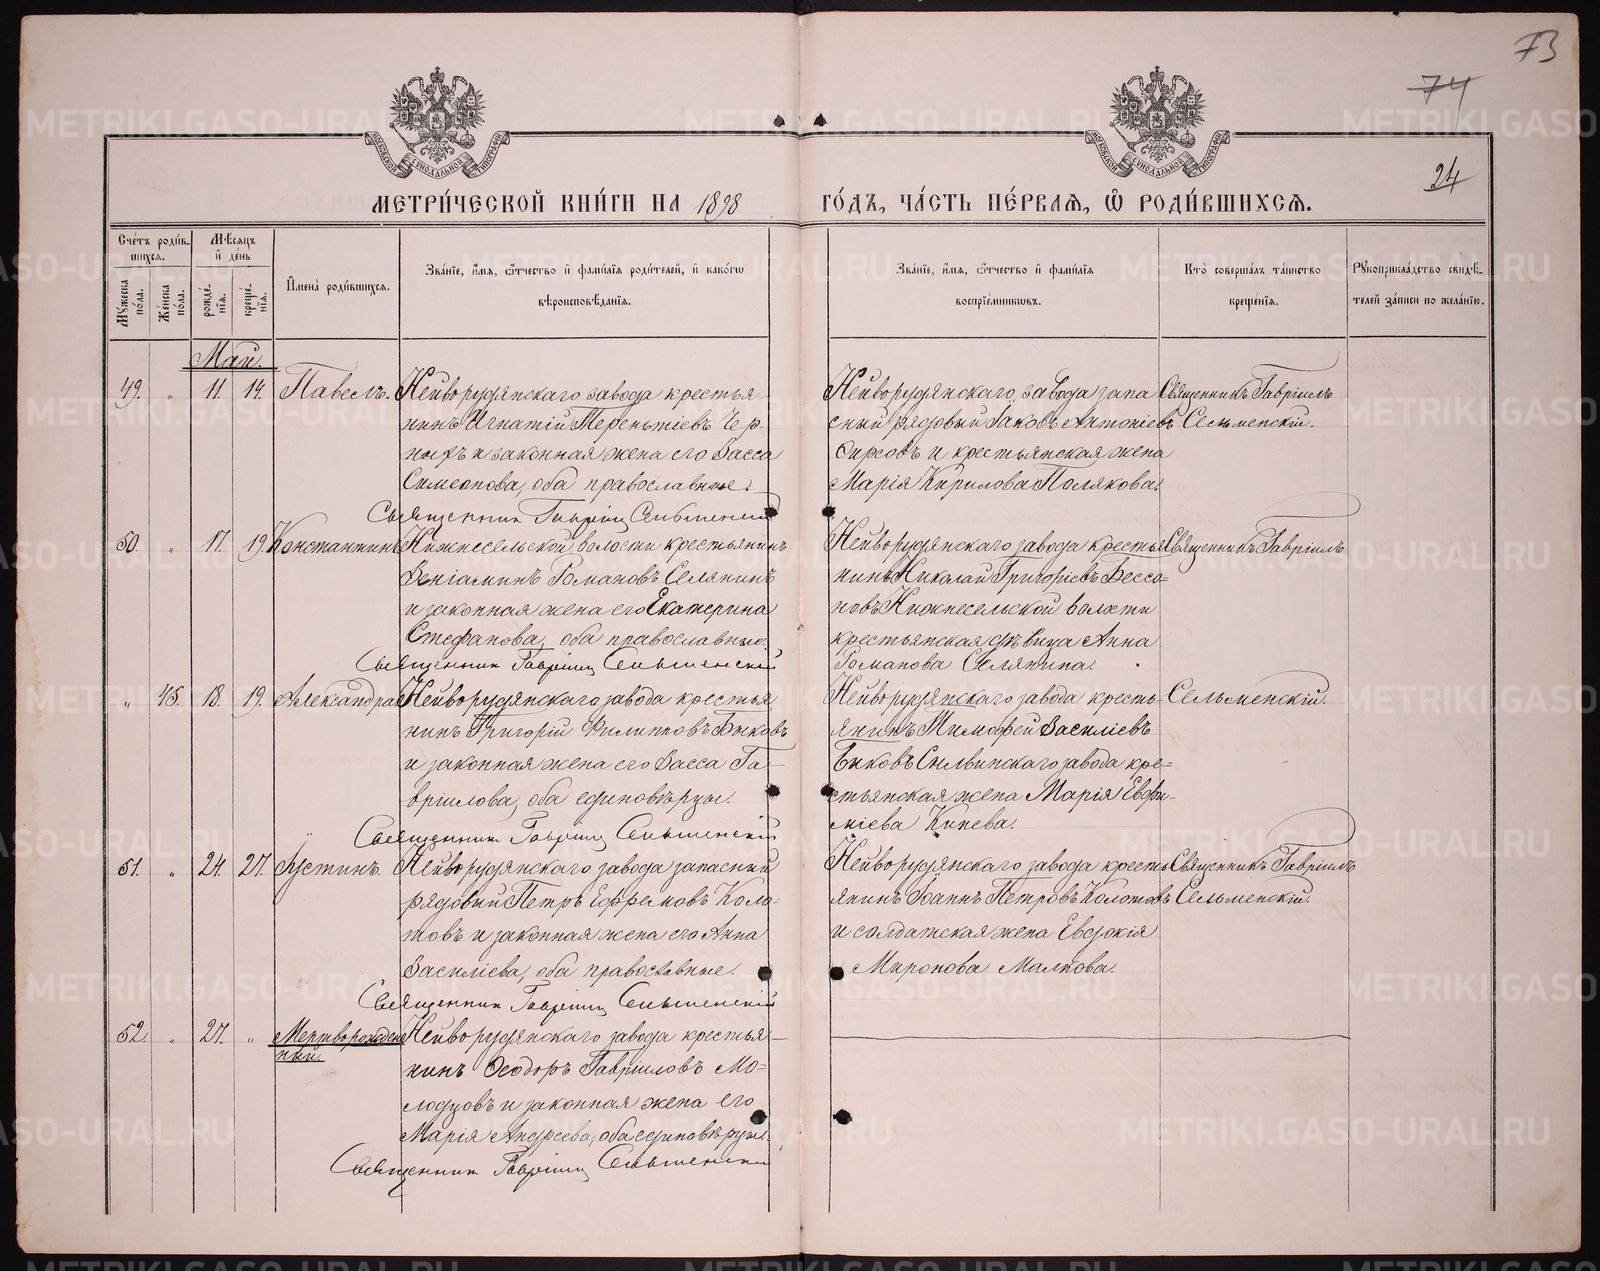 73
74
24
МОСКОВСКОЙ СѴНОДАЛЬНОЙ ТИПОГРАФІИ
МОСКОВСКОЙ СѴНОДАЛЬНОЙ ТИПОГРАФІИ
МЕТРИ́ЧЕСКОЙ КНИ́ГИ НА 1898 ГО́ДЪ, ЧА́СТЬ ПЕ́РВАѦ, Ѡ҆ РОДИ́ВШИХСѦ.
Сче́тъ роди́в-
шихсѧ.
Мꙋ́жеска по́ла.
Же́нска по́ла.
Мѣ́сѧцъ
и҆ де́нь
рожде́-
нїѧ.
креще́-
нїѧ.
И҆мена̀ роди́вшихсѧ.
Зва́нїе, и҆́мѧ, ѻ҆́тчество и҆ фами́лїѧ роди́телей, и҆ како́гѡ
вѣроисповѣ́данїѧ.
Зва́нїе, и҆́мѧ, ѻ҆́тчество и҆ фами́лїѧ
воспрїе́мникѡвъ.
Кто̀ соверша́лъ та́инство
креще́нїѧ.
Рꙋкоприкла́дство свидѣ́-
телей за́писи по жела́нїю.
Май.
49. " 11. 14. Павелъ. Нейворудянскаго завода крестья-
нинъ Игнатій Терентіевъ Чер-
ныхъ и законная жена его Васса
Симеонова, оба православные.
Священник Гавріил Сельменскій
Нейворудянскаго завода запа
сный рядовый Іаковъ Антоніевъ
Сиреовъ и крестьянская жена
Марія Кирилова Полякова.
Священникъ Гавріилъ
Сельменскій.
50. " 17. 19. Константинъ Нижнесельской волости крестьянинъ
Веніаминъ Романовъ Селянинъ
и законная жена его Екатерина
Стефанова, оба православные.
Священник Гавріил Сельменскій
Нейворудянскаго завода крестья
нинъ Николай Григоріевъ Бессо=
новъ Нижнесельской волости
крестьянская дѣвица Анна
Романова Селянина.
Священникъ Гавріилъ
" 45. 18. 19. Александра Нейворудянскаго завода крестья
нинъ Григорій Филиповъ Быковъ
и законная жена его Васса Га-
вріилова, оба единовѣрцы.
Священник Гавріил Сельменскій
Нейворудянскаго завода кресть-
янинъ Тимофей Василіевъ
Быковъ Сылвинскаго завода кре=
стьянская жена Марія Евфи-
міева Кинева.
Сельменскій.
51. " 24. 27. Іустинъ. Нейворудянскаго завода запасный
рядовый Петръ Ефремовъ Коло-
товъ и законная жена его Анна
Василіева, оба православные.
Священник Гавріил Сельменскій
Нейворудянскаго завода кресть
янинъ Іоаннъ Петровъ Колотовъ
и солдатская жена Евдокія
Миронова Малкова.
Священникъ Гавріилъ
Сельменскій.
52. " 27. " Мертворожден
ный. Нейворудянскаго завода крестья-
нинъ Ѳеодоръ Гавріиловъ Мо=
лодцовъ и законная жена его
Марія Андреева, оба единовѣрцы.
Священник Гавріил Сельменскій
METRIKI.GASO-URAL.RU